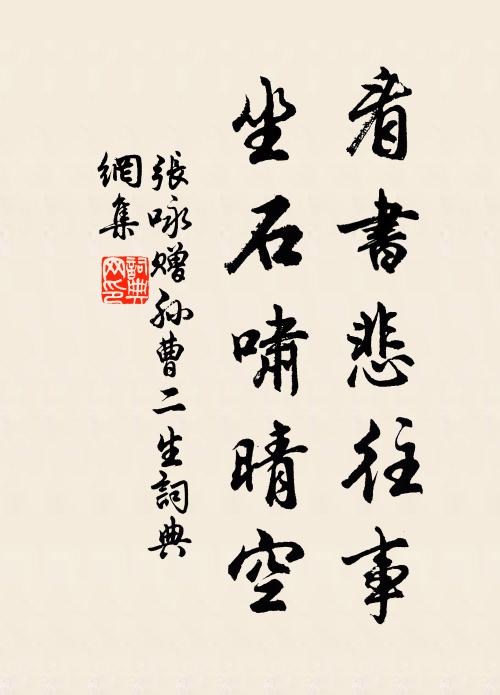 看書悲往事
坐石嘯晴空
張咏贈孙曹二生詞典
網集
詞典
网印